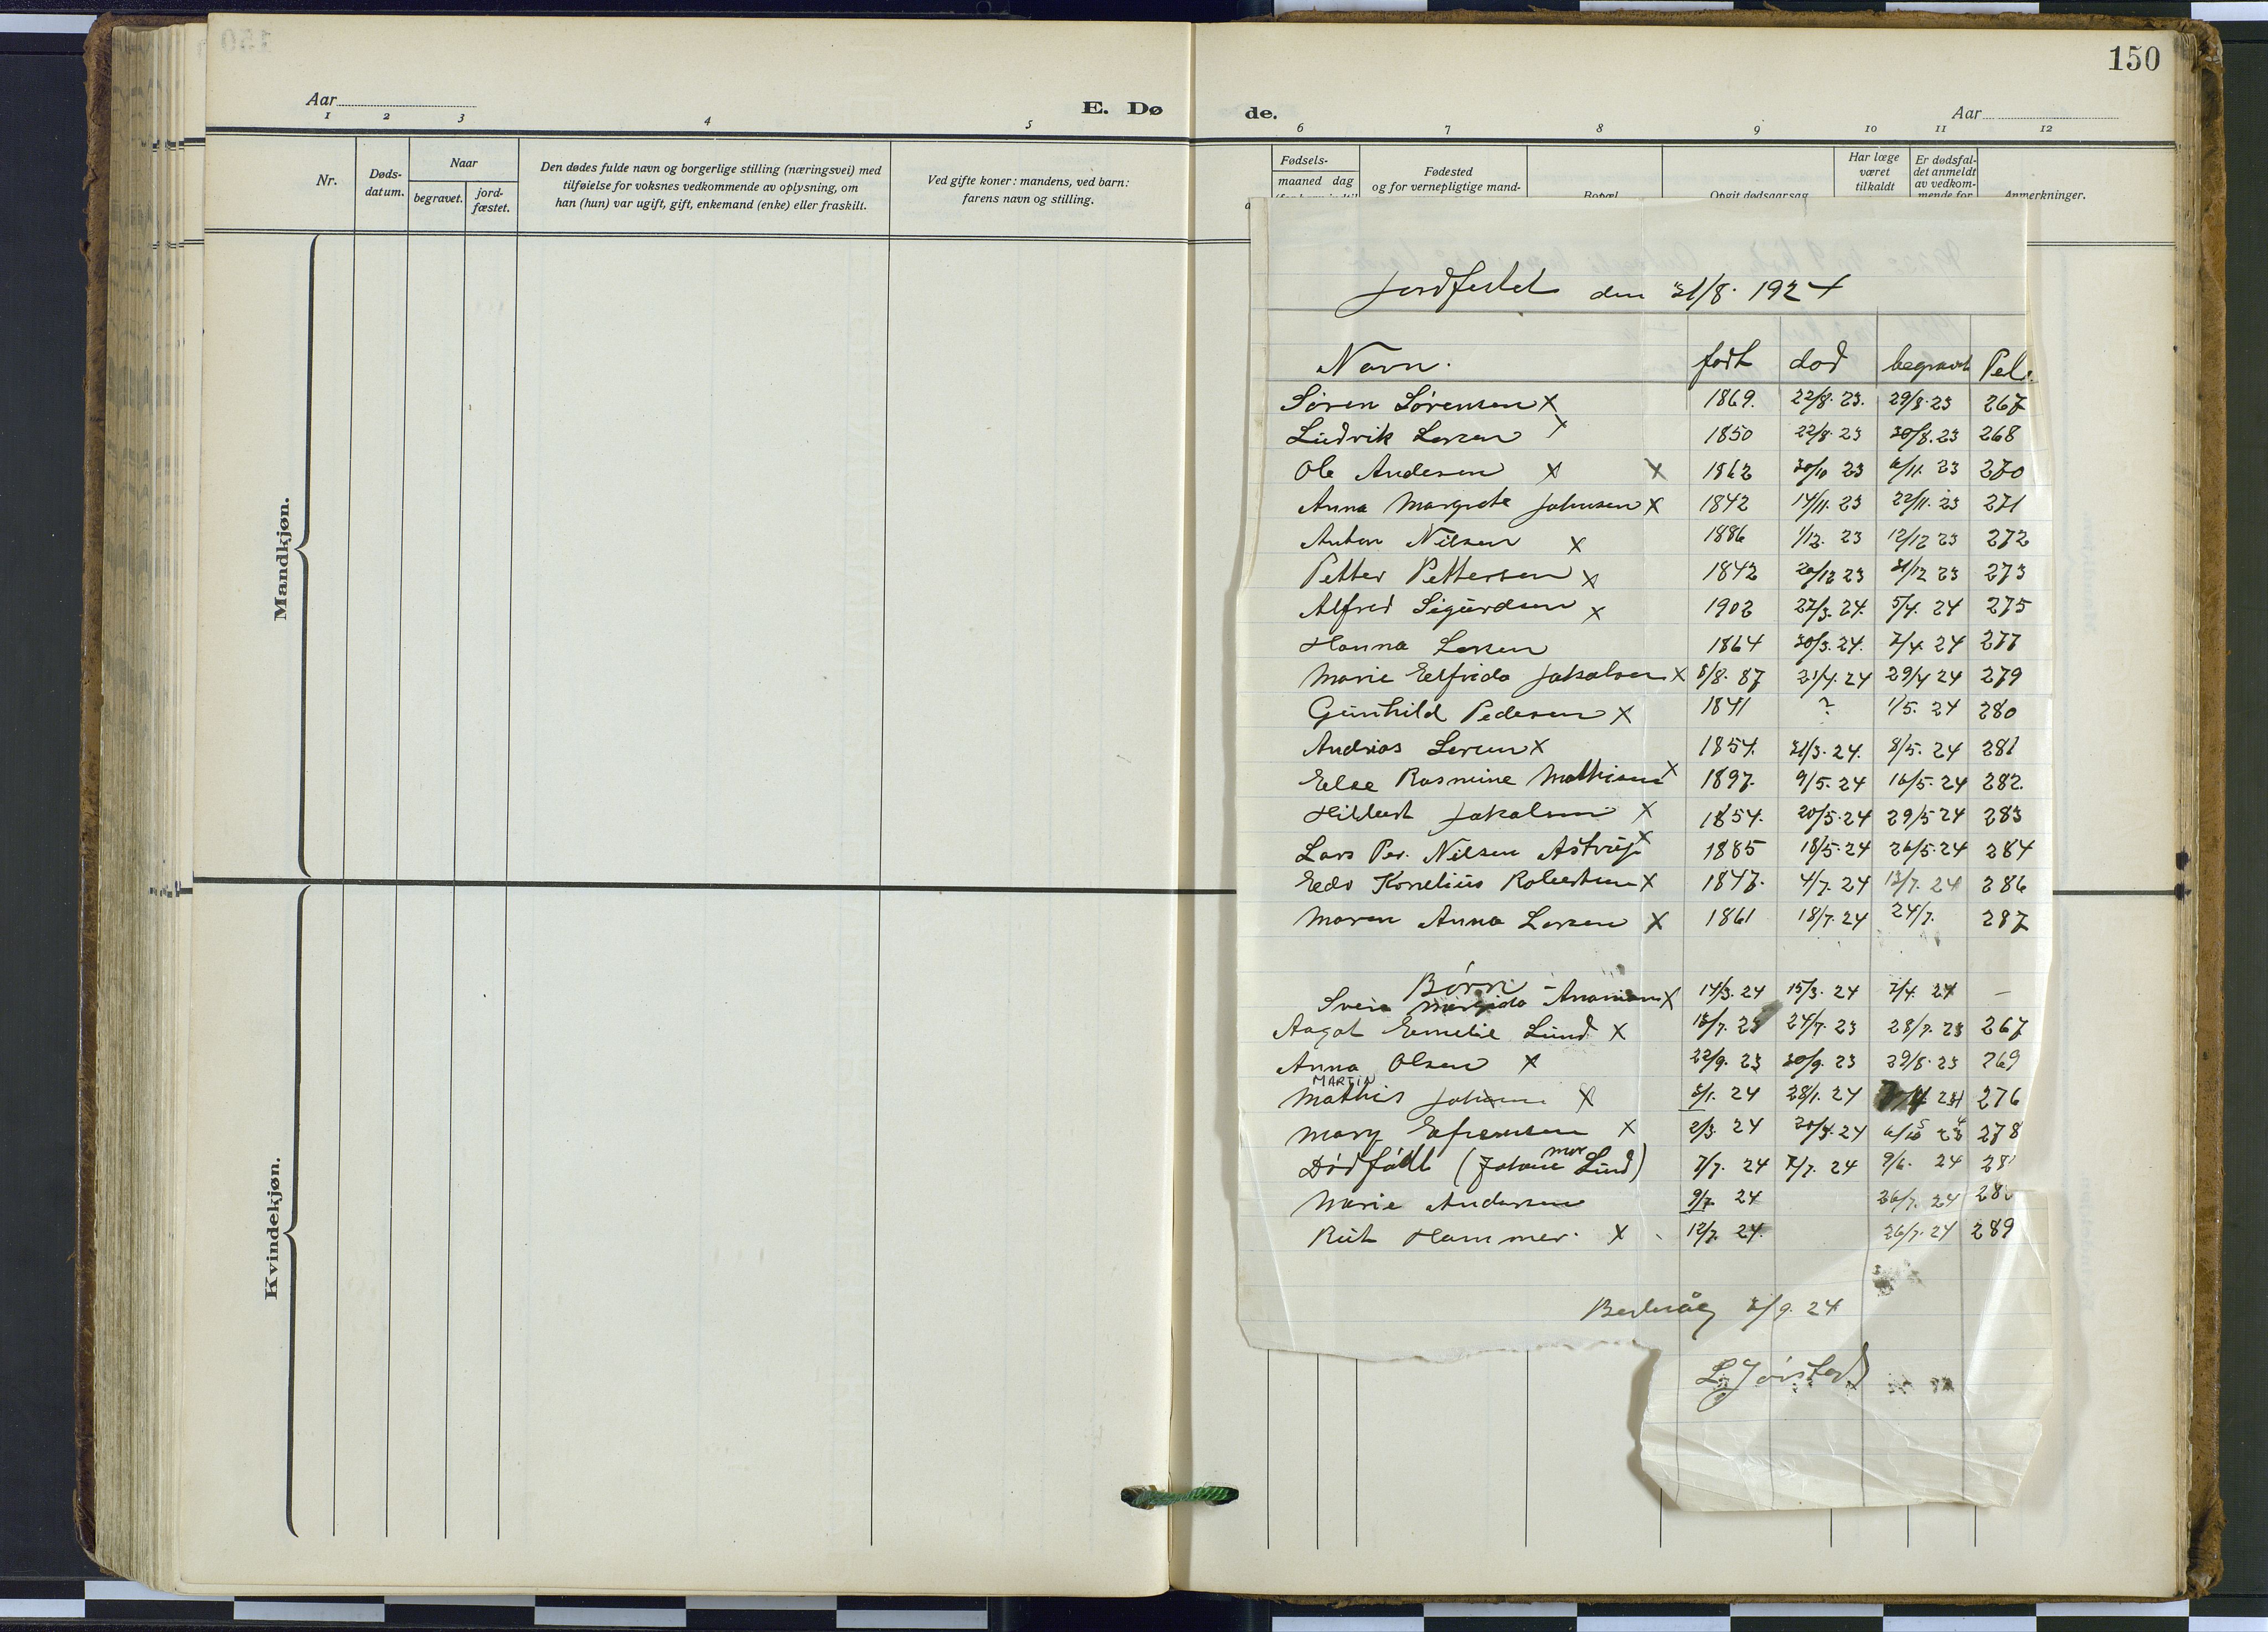 150
Aar
E. Dø
de.
Aar
1 2 3 4 5 6 7 8 9 10 11 12
Nr.
Døds-
datum.
Naar
begravet.
jord-
fæstet.
Den dødes fulde navn og borgerlige stilling (næringsvei) med
tilføielse for voksnes vedkommende av oplysning, om
han (hun) var ugift, gift, enkemand (enke) eller fraskilt.
Ved gifte koner: mandens, ved barn:
farens navn og stilling.
Fødsels-
maaned dag
Fødested
og for vernepligtige mand-
Bopæl
Opgit dødsaarsag
Har læge
været
tilkaldt
Er dødsfal-
det anmeldt
av vedkom-
mende for
Anmerkninger.
Mandkjøn.
Kvindekjøn.
Jordfestet den 31/8. 1924
Navn. født død begravet Pel.
Søren Sørensen X 1869. 22/8. 23. 29/8. 23 267
Ludvik Larsen X 1850 22/8. 23 30/8. 23 268
Ole Andesen X X 1862 30/10 23 6/11. 23 270
Anna Margrete Johnsen X 1842 14/11. 23 22/11. 23 271
Anton Nilsen X 1886 1/12. 23 12/12 23 272
Petter Pettersen X 1842 20/12 23 31/12 23 273
Alfred Sigurdsen X 1902 27/3. 24. 5/4. 24 275
Hanna Larsen 1864 30/3. 24. 7/4. 24 277
Marie Elfrida Jakobsen X 8/8. 87 21/4. 24 29/4 24 279
Gunhild Pedersen X 1841 ? 1/5. 24 280
Andrias Larsen X 1854. 31/3. 24. 8/5. 24 281
Else Rasmine Mathisen X 1897. 9/5. 24 16/5. 24 282.
Hilbert Jakobsen X 1854. 20/5. 24 29/5 24 283
Lars Per. Nilsen X 1885 18/5. 24 26/5. 24 284
Kornelius Robertsen X 1847. 4/7. 24 13/7. 24 286
Maren Anna Larsen X 1861 18/7. 24 24/7. 287
Børn
Svein X 14/3. 24 15/3. 24 7/4. 24 —
Aagot Emelie Lund X 24/7. 23 28/7. 23 267
Anna Olsen X 22/9. 23 30/9. 23 29/8. 23 269
MARTIN
Mathis X 24 28/1. 24 276
Mary Efremsen X 2/3. 24 20/4. 24 278
mor
Dødfødt (Johan Lund) 7/7. 24 7/7. 24 9/6. 24
Marie Andersen 9/7. 24 26/7. 24
Rut Hammer. X 12/7. 24. 26/7. 24 289
Berlevåg 2/9. 24